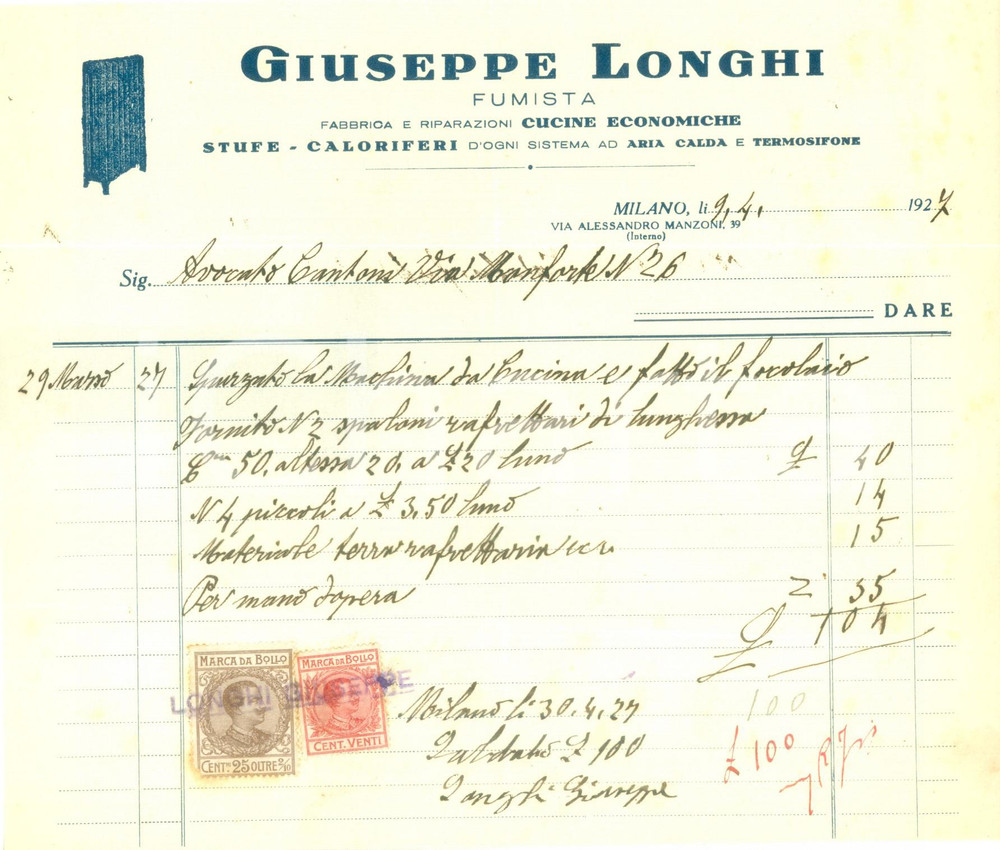 GIUSEPPE LONGHI
FUMISTA
FABBRICA E RIPARAZIONI CUCINE ECONOMICHE
STUFE - CALORIFERI D'OGNI SISTEMA AD ARIA CALDA E TERMOSIFONE
MILANO, li 9.4. 1927
VIA ALESSANDRO MANZONI, 39
(Interno)
Sig. Avocato Cantoni Via Monforte N 26
DARE
29 Marzo 27 Spurzato la Machina da Cucina e fatto il focolaio
Fornito N 2 spaloni rafrettari di lunghessa
Cm 50. altessa 20. a £ 20 luno £ 40
N 4 piccoli a £ 3,50 luno 14
Materiale terra rafrettaria ecc. 15
Per mano dopera 35
£ 104
MARCA DA BOLLO
CENT.MI 25 OLTRE 2/10
MARCA DA BOLLO
CENT. VENTI
LONGHI GIUSEPPE
Milano li 30.4.27
Saldato £ 100
Longhi Giuseppe
100
£ 100